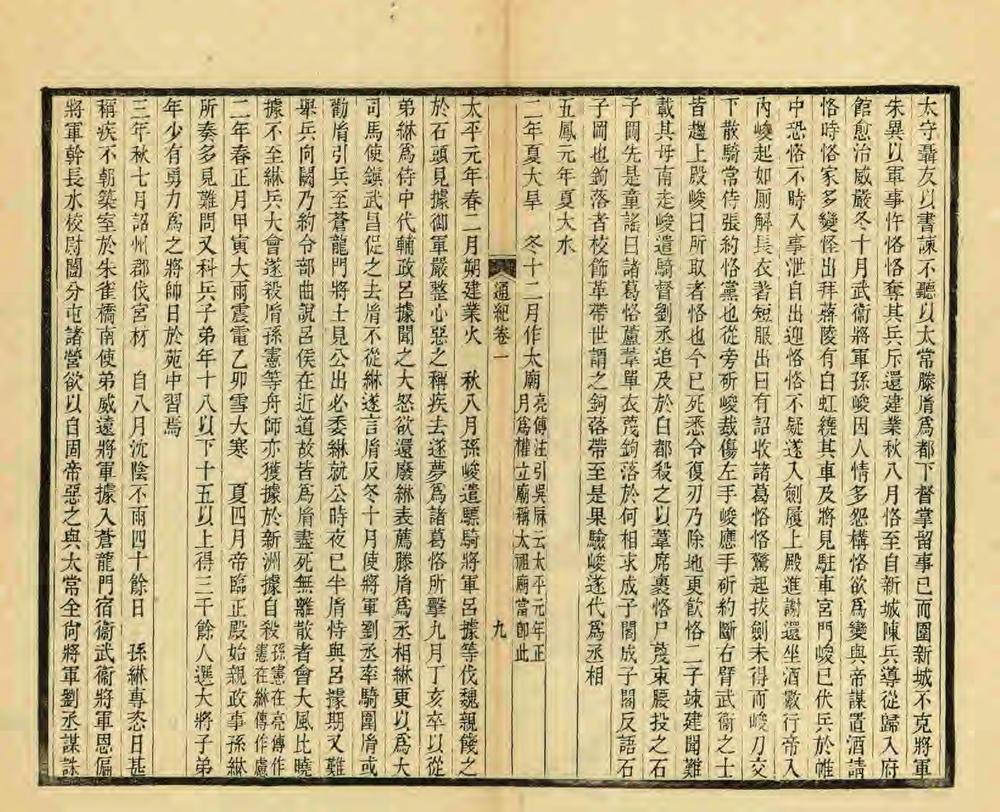 太守聶友以書諫不聽以太常滕胤爲都下督掌留事已而圍新城不克將軍
朱異以軍事忤恪恪奪其兵斥還建業秋八月恪至自新城陳兵導從歸入府
館愈治威嚴冬十月武衞將軍孫峻因人情多怨構恪欲爲變與帝謀置酒請
恪時恪家多變怪出拜蔣陵有白虹繞其車及將見駐車宮門峻已伏兵於帷
中恐恪不時入事泄自出迎恪恪不疑遂入劍履上殿進謝還坐酒數行帝入
內峻起如廁解長衣著短服出曰有詔收諸葛恪恪驚起拔劍未得而峻刀交
下散騎常侍張約恪黨也從旁斫峻裁傷左手峻應手斫約斷右臂武衞之士
皆趨上殿峻曰所取者恪也今已死悉令復刃乃除地更飮恪二子竦建聞難
載其母南走峻遣騎督劉丞追及於白都殺之以葦席裹恪尸蔑束腰投之石
子岡先是童謠曰諸葛恪蘆葦單衣蔑鉤落於何相求成子閣成子閣反語石
子岡也鉤落者校飾革帶世謂之鉤落帶至是果驗峻遂代爲丞相
五鳳元年夏大水
二年夏大旱　冬十二月作太廟亮傳注引吳厤云太平元年正月爲權立廟稱太祖廟當卽此
通紀卷一　九
太平元年春二月朔建業火　秋八月孫峻遣驃騎將軍呂據等伐魏親餞之
於石頭見據御軍嚴整心惡之稱疾去遂夢爲諸葛恪所擊九月丁亥卒以從
弟綝爲侍中代輔政呂據聞之大怒欲還廢綝表薦滕胤爲丞相綝更以爲大
司馬使鎭武昌促之去胤不從綝遂言胤反冬十月使將軍劉丞率騎圍胤或
勸胤引兵至蒼龍門將士見公出必委綝就公時夜已半胤恃與呂據期又難
舉兵向闕乃約令部曲說呂侯在近道故皆爲胤盡死無離散者會大風比曉
據不至綝兵大會遂殺胤孫憲等舟師亦獲據於新洲據自殺孫憲在亮傳作憲在綝傳作慮
二年春正月甲寅大雨震電乙卯雪大寒　夏四月帝臨正殿始親政事孫綝
所奏多見難問又科兵子弟年十八以下十五以上得三千餘人選大將子弟
年少有勇力爲之將帥日於苑中習焉
三年秋七月詔州郡伐宮材　自八月沈陰不雨四十餘日　孫綝專恣日甚
稱疾不朝築室於朱雀橋南使弟威遠將軍據入蒼龍門宿衞武衞將軍恩偏
將軍幹長水校尉闓分屯諸營欲以自固帝惡之與太常全尙將軍劉丞謀誅